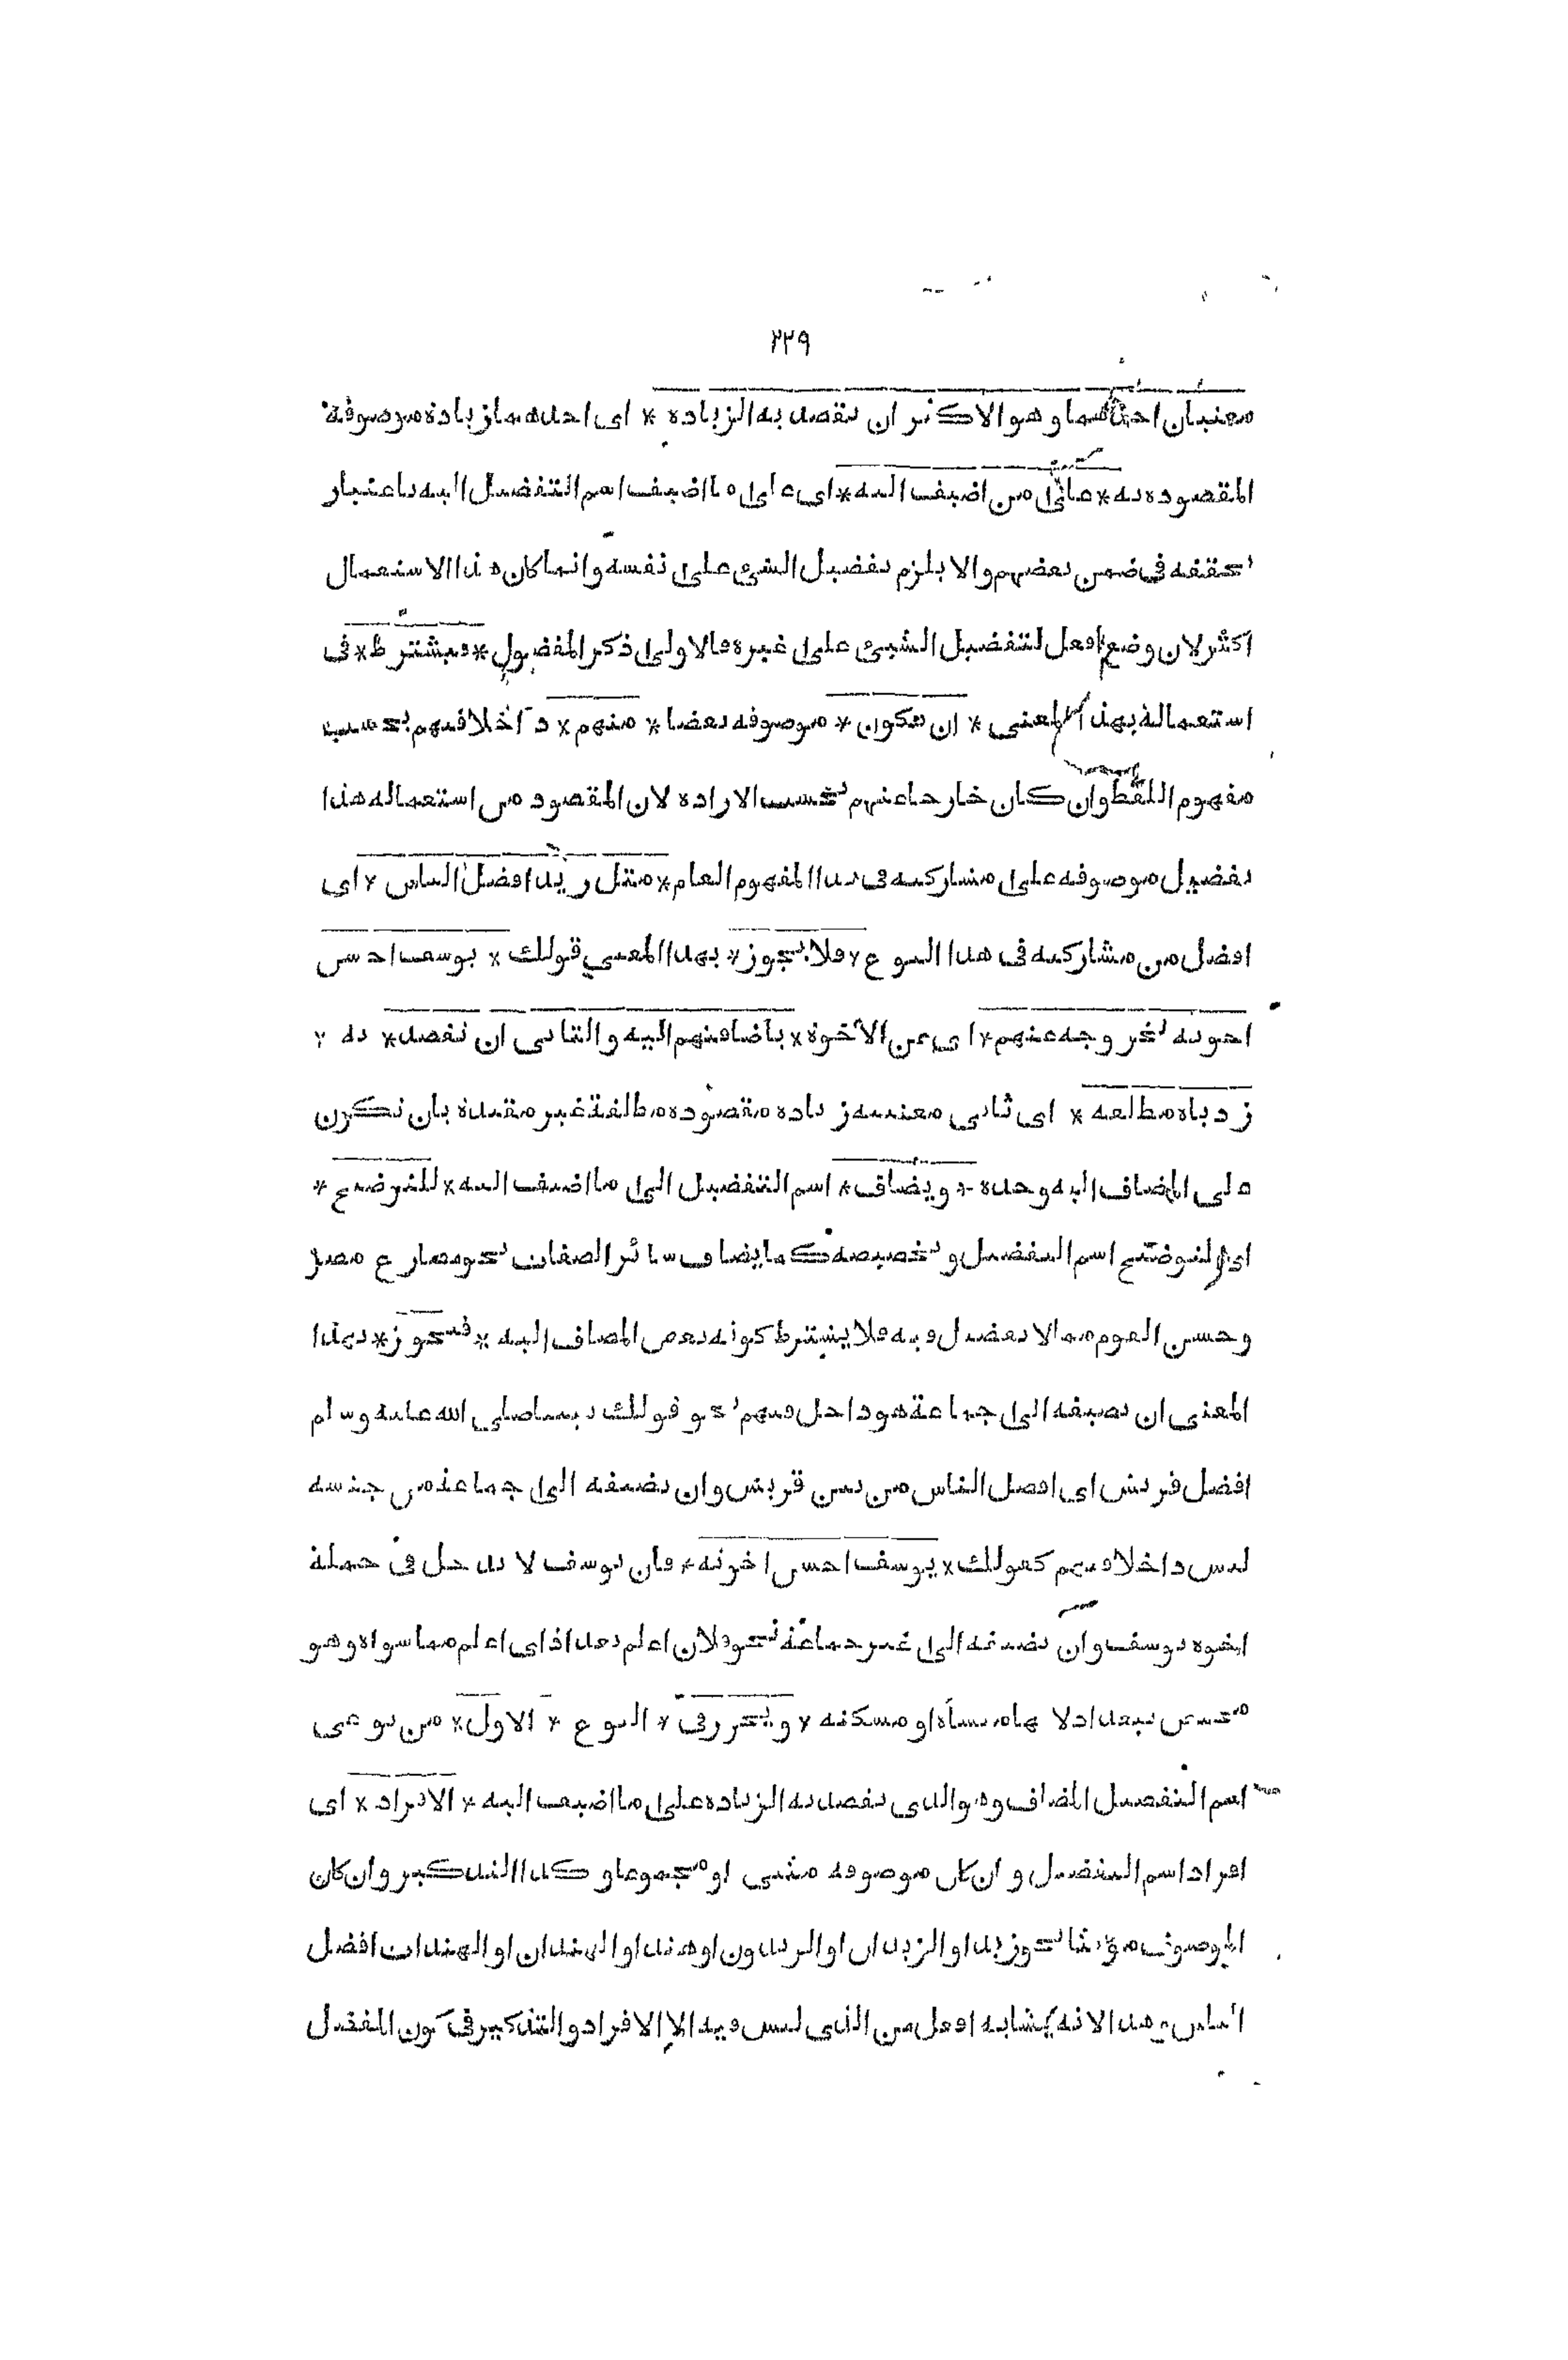 ٢٢٩
معنيان احدهما وهو الاكثر ان تقصد به الزيادة * اى احدهما زيادة موصوفة
المقصودة به * على من اضيف اليه * اى على ما اضيف اسم التفضيل اليه باعتبار
تحققه فى ضمن بعضهم والا يلزم تفضيل الشئ على نفسه وانما كان هذا الاستعمال
اكثر لان وضع افعل لتفضيل الشيئ على غيره فالاولى ذكر المفضول * ويشترط * فى
استعماله بهذا المعنى * ان يكون * موصوفه بعضا * منهم * داخلا فيهم بحسب
مفهوم اللفظ وان كان خارجا عنهم بحسب الارادة لان المقصود من استعماله هذا
تفضيل موصوفه على مشاركيه فى هذا المفهوم العام * مثل زيد افضل الناس * اى
افضل من مشاركيه فى هذا النوع * فلا يجوز * بهذا المعنى قولك * يوسف احسن
اخوته لخروجه عنهم * اى عن الاخوة * باضافتهم اليه والثانى ان تقصد * به *
زيادة مطلقة * اى ثانى معنييه زيادة مقصودة مطلقة غير مقيدة بان تكون
على المضاف اليه وحده * ويضاف * اسم التفضيل الى ما اضيف اليه * للتوضيح *
اى لتوضيح اسم التفضيل وتخصيصه كما يضاف سائر الصفات نحو مصارع مصر
وحسن القوم مما لا تفضيل فيه فلا يشترط كونه بعض المضاف اليه * فيجوز * بهذا
المعنى ان تضيفه الى جماعة هو داخل فيهم نحو قولك نبينا صلى الله عليه وسلم
افضل قريش اى افضل الناس من بين قريش وان تضيفه الى جماعة من جنسه
ليس داخلا فيهم كقولك * يوسف احسن اخوته * فان يوسف لا يدخل فى جملة
اخوة يوسف وان تضيفه الى غير جماعة نحو فلان اعلم بغداد اى اعلم مما سواه وهو
مختص ببغداد لانها منشأه او مسكنه * ويجوز فى * النوع * الاول * من نوعى
اسم التفضيل المضاف وهو الذى تقصد به الزيادة على ما اضيف اليه * الافراد * اى
افراد اسم التفضيل وان كان موصوفه مثنى او مجموعا وكذا التذكير وان كان
الموصوف مؤنثا نحو زيد او الزيدان او الزيدون او هند او الهندان او الهندات افضل
الناس وهذا لانه يشابه افعل من الذى ليس فيه الا الافراد والتذكير فى كون المفضل